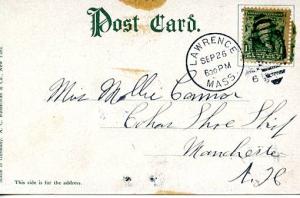 Post Card.
LAWRENCE
SEP 26
6 30 PM
MASS.
Miss Mollie Cannon
Cohas Shoe Shop
Manchester
N. H.
This side is for the address.